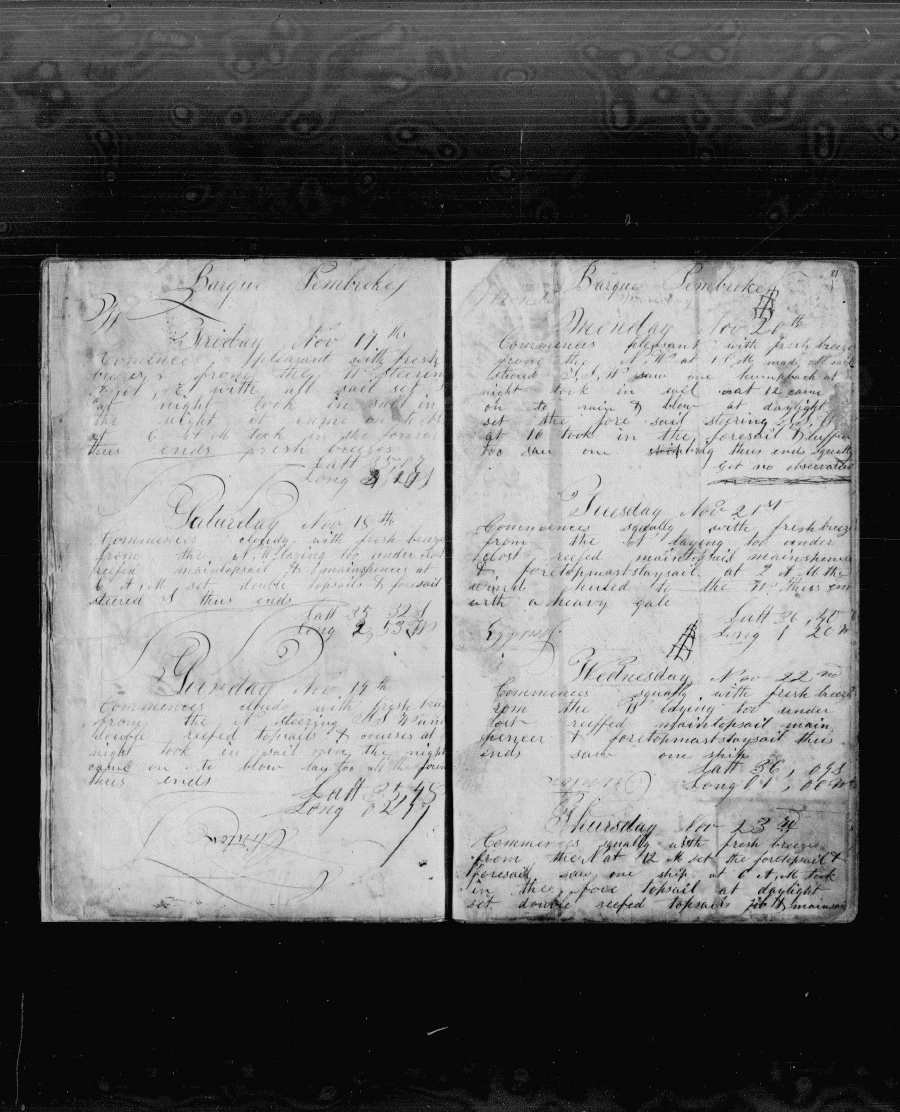 Barque Pembroke
Friday Nov 17th
Comences pleasant with fresh
breezes from the W steering
E with all sail set
at night took in sail in
the night it came on to
at 6 A M took in the foresail
thus ends fresh breezes
Latt
Long
Saturday Nov 18th
Commences cloudy with fresh breezes
from the N, W laying too under close
reefed maintopsail & mainspencer at
6 A, M, set double topsails & foresail
steered S thus ends
Latt 35 32 S
Long 2, 53 W
Sunday Nov 19th
Commences cloudy with fresh
from the N steering S, S W and
double reefed topsails & courses at
night took in sail in the night
came on to blow lay too
thus ends
Latt 35, 48
Long 0 24
Barque Pembroke 81
Monday Nov 20th
Commences pleasant with fresh breeze
from the N W at 1 P M made all sail
steered S, S, W saw one humpback at
night took in sail at 12 came
on to rain & blow at daylight
set the fore sail steering
at 10 took in the foresail &
too saw one thus ends squally
Got no observation
Tuesday Nov 21st
Commences squally with fresh breeze
from the W laying too under
close reefed maintopsail mainspencer
& foretopmaststaysail at A M the
wind hauled to the W. thus ends
with a heavy gale
Latt 36, 40
Long 1 20 W
Wednesday Nov 22nd
Commences squally with fresh breeze
from the W laying too under
close reeffed maintopsail main
spencer & foretopmaststaysail thus
ends saw one ship
Latt 36, 09 S
Long 01, 00 W
Thursday Nov 23rd
Commences squally with fresh breezes
from the N at 12 M set the foretopsail &
foresail saw one ship at 6 A, M took
in the fore topsail at daylight
set double reefed topsails jib & mainsail